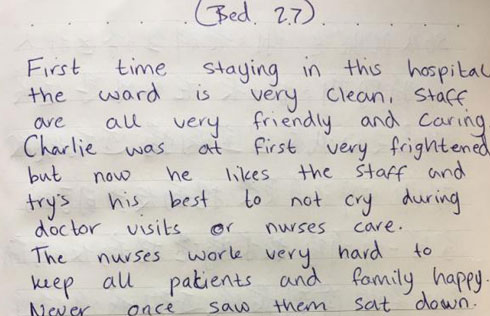 (Bed. 27)
First time staying in this hospital
the ward is very clean, staff
are all very friendly and caring
Charlie was at first very frightened
but now he likes the staff and
try's his best to not cry during
doctor visits or nurses care.
The nurses work very hard to
keep all patients and family happy.
Never once saw them sat down.